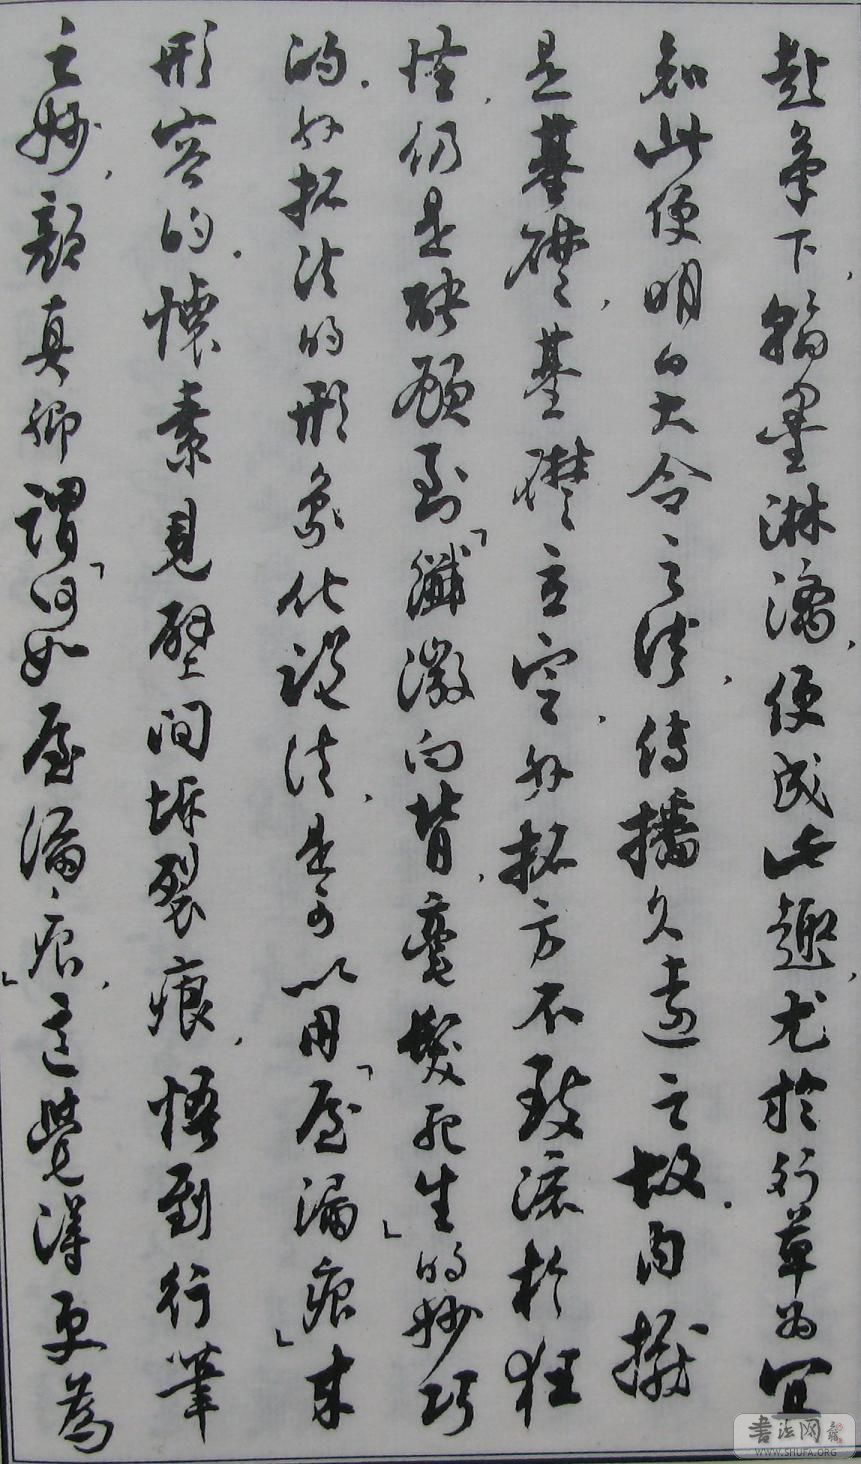 赴筆下，翰墨淋漓，便成此趣，尤於行草為宜
知此便明白大令之法，傳播久遠之故。内擫
是基礎，基礎立定，外拓方不致流於狂
怪，仍是能顧到「纖微向背，毫髮死生」的妙巧
的。外拓法的形象化說法，是可以用「屋漏痕」来
形容的。懷素見壁間坼裂痕，悟到行筆
之妙，顏真卿謂「何如屋漏痕」，這覺得更為
書法网
WWW.SHUFA.ORG